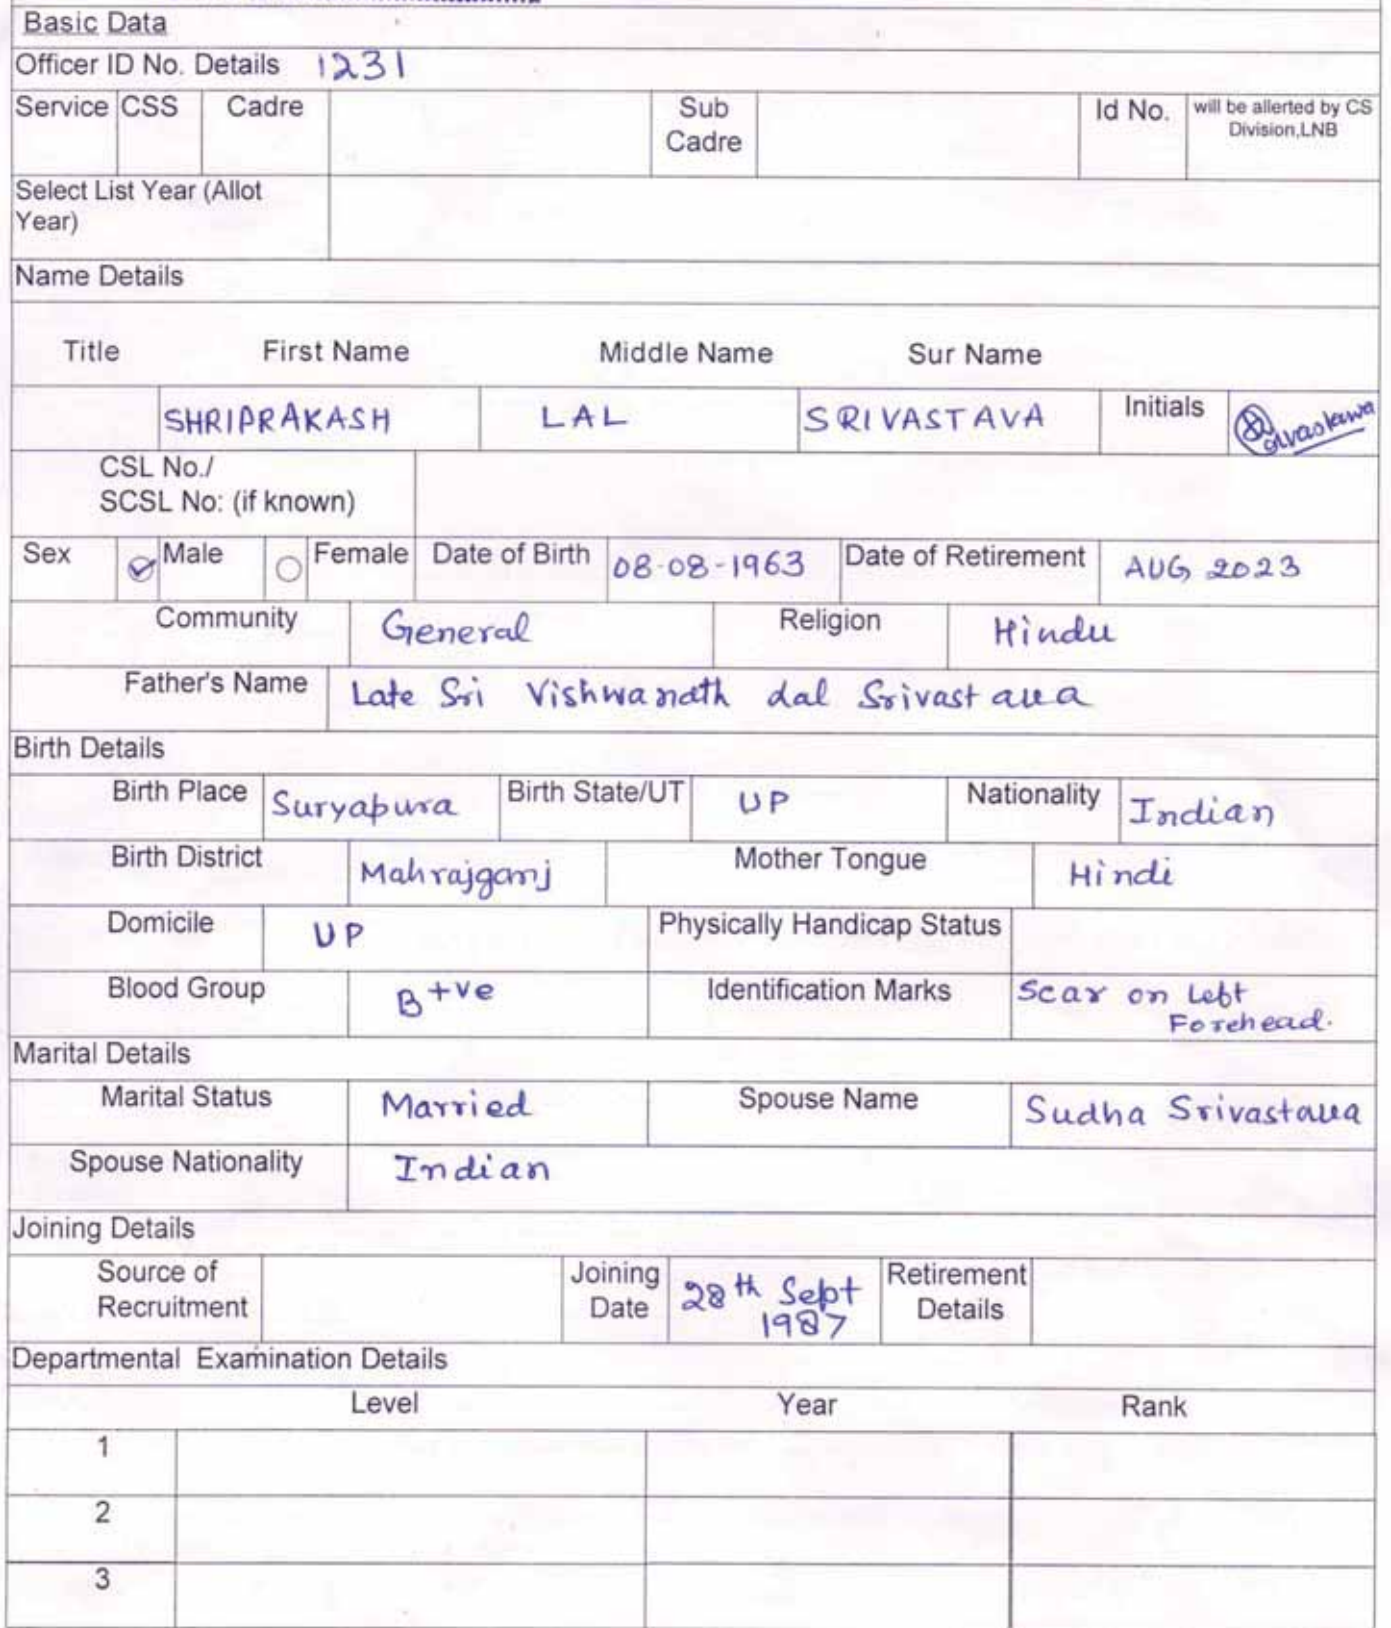 Basic Data
Officer ID No. Details 1231
Service CSS Cadre Sub Cadre Id No. will be allerted by CS Division,LNB
Select List Year (Allot Year)
Name Details
Title First Name Middle Name Sur Name
SHRIPRAKASH LAL SRIVASTAVA Initials
CSL No./
SCSL No: (if known)
Sex Male Female Date of Birth 08-08-1963 Date of Retirement AUG 2023
Community General Religion Hindu
Father's Name Late Sri Vishwanath Lal Srivastava
Birth Details
Birth Place Suryapura Birth State/UT UP Nationality Indian
Birth District Mahrajganj Mother Tongue Hindi
Domicile UP Physically Handicap Status
Blood Group B+ve Identification Marks Scar on Left Forehead.
Marital Details
Marital Status Married Spouse Name Sudha Srivastava
Spouse Nationality Indian
Joining Details
Source of Recruitment Joining Date 28th Sept 1987 Retirement Details
Departmental Examination Details
Level Year Rank
1
2
3